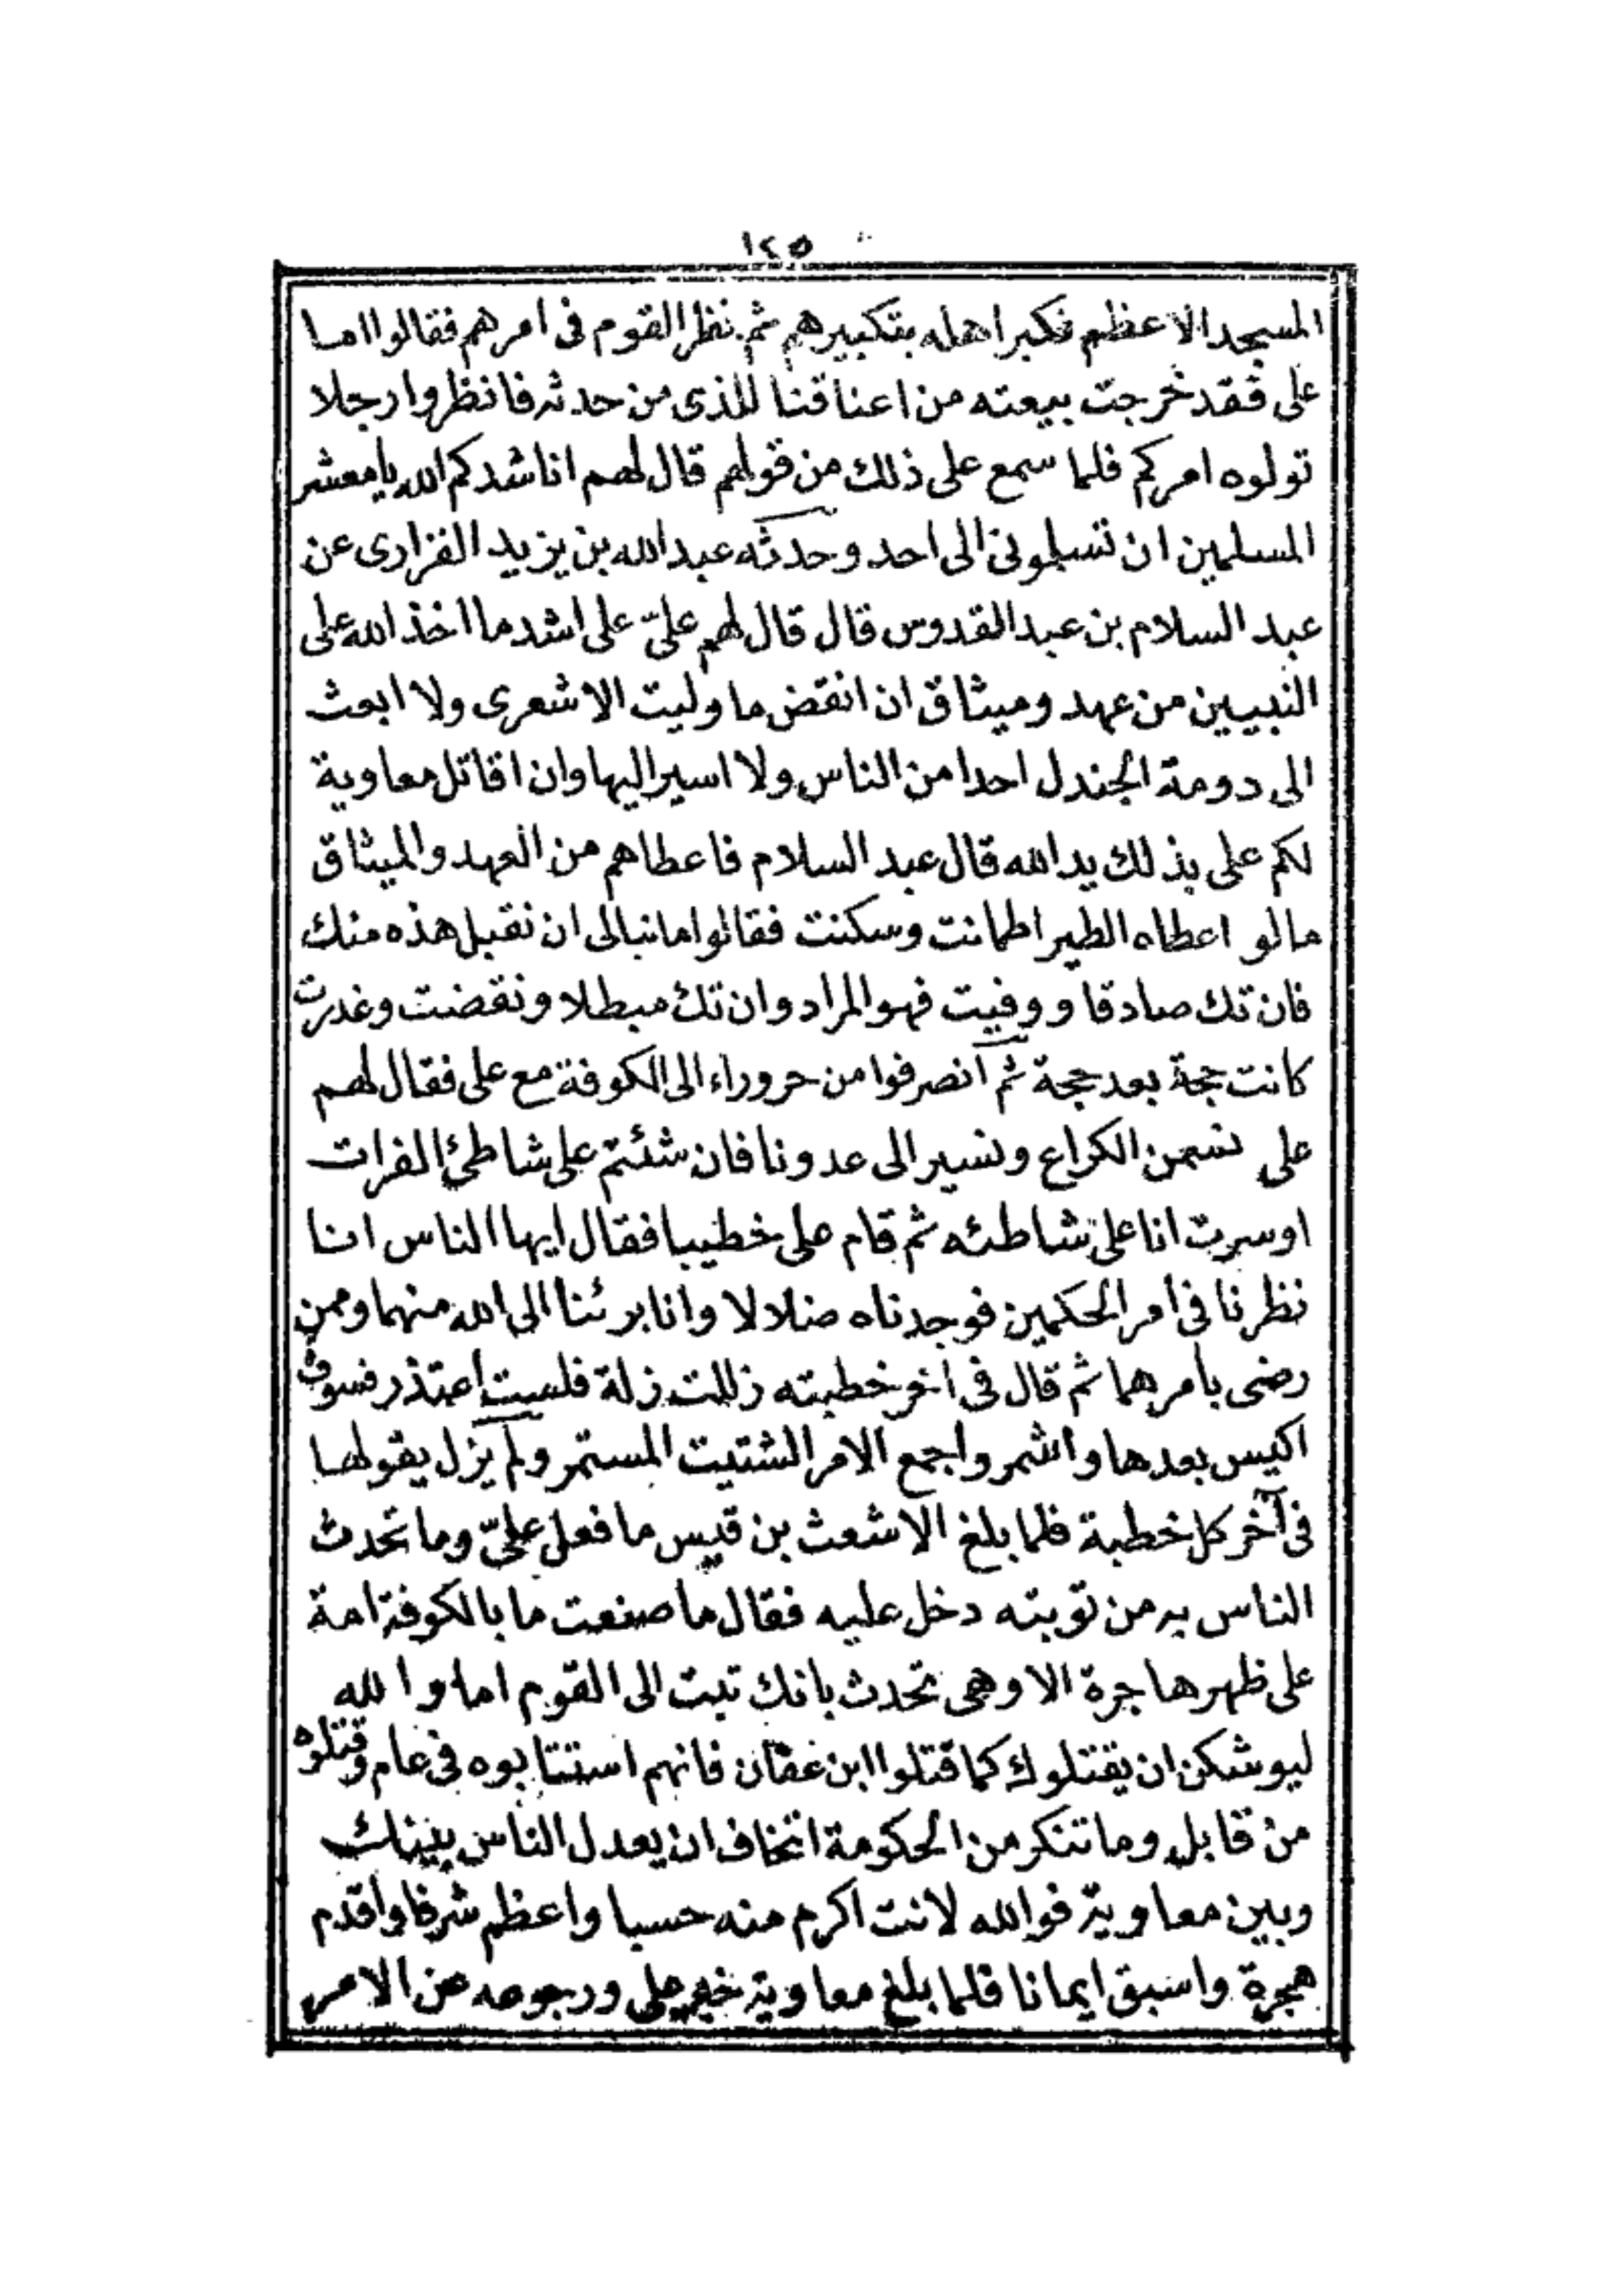 ١٢٥
المسجد الاعظم فكبر اهله بتكبيرهم ثم نظر القوم فى امرهم فقالوا اما
على فقد خرجت بيعته من اعناقنا للذى من حدثه فانظروا رجلا
تولوه امركم فلما سمع على ذلك من قولهم قال لهم اناشدكم الله يا معشر
المسلمين ان تسلمونى الى احد وحدثه عبد الله بن يزيد الفزارى عن
عبد السلام بن عبد القدوس قال قال لهم علىّ على اشد ما اخذ الله على
النبيين من عهد وميثاق ان انقض ما وليت الاشعرى ولا ابعث
الى دومة الجندل احدا من الناس ولا اسير اليها وان اقاتل معاوية
لكم على بذلك يد الله قال عبد السلام فاعطاهم من العهد والميثاق
مالو اعطاه الطير اطمانت وسكنت فقالوا ما نبالى ان نقبل هذه منك
فان تك صادقا ووفيت فهو المراد وان تك مبطلا ونقضت وغدرت
كانت حجة بعد حجة ثم انصرفوا من حروراء الى الكوفة مع على فقال لهم
على نسمن الكراع ونسير الى عدونا فان شئتم على شاطئ الفرات
او سرت انا على شاطئه ثم قام على خطيبا فقال ايها الناس انا
نظرنا فى امر الحكمين فوجدناه ضلالا وانا برئنا الى الله منهما وممن
رضى بامرهما ثم قال فى اخر خطبته زللت زلة فلست اعتذر فسوف
اكيس بعدها واشمر واجمع الامر الشتيت المستمر ولم يزل يقولها
فى آخر كل خطبة فلما بلغ الاشعث بن قيس ما فعل علىّ وما تحدث
الناس به من توبته دخل عليه فقال ما صنعت ما بالكوفة امة
على ظهرها جرة الا وهى تحدث بانك تبت الى القوم اما والله
ليوشكن ان يقتلوك كما قتلوا ابن عفان فانهم استتابوه فى عام وقتلوه
من قابل وما تنكر من الحكومة اتخاف ان يعدل الناس بينك
وبين معاوية فوالله لانت اكرم منه حسبا واعظم شرفا واقدم
هجرة واسبق ايمانا فلما بلغ معاوية خبر على ورجوعه عن الامر